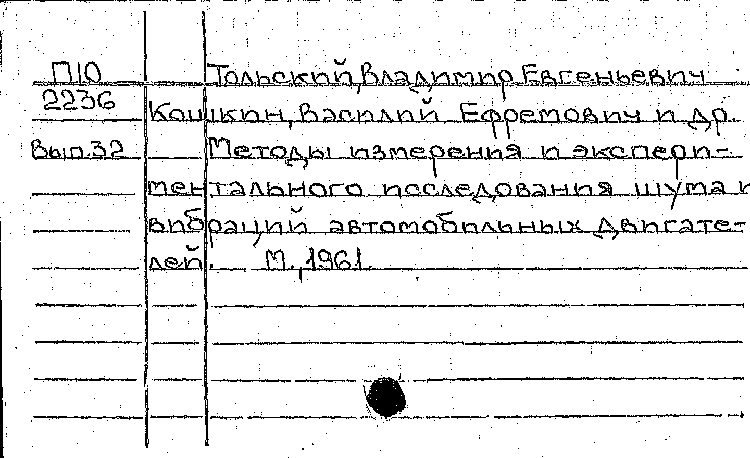 П10 Тольский, Владимир Евгеньевич
2236 Кошкин, Василий Ефремович и др.
Вып.32 Методы измерения и экспери-
ментального исследования шума и
вибраций автомобильных двигате-
лей. М., 1961.